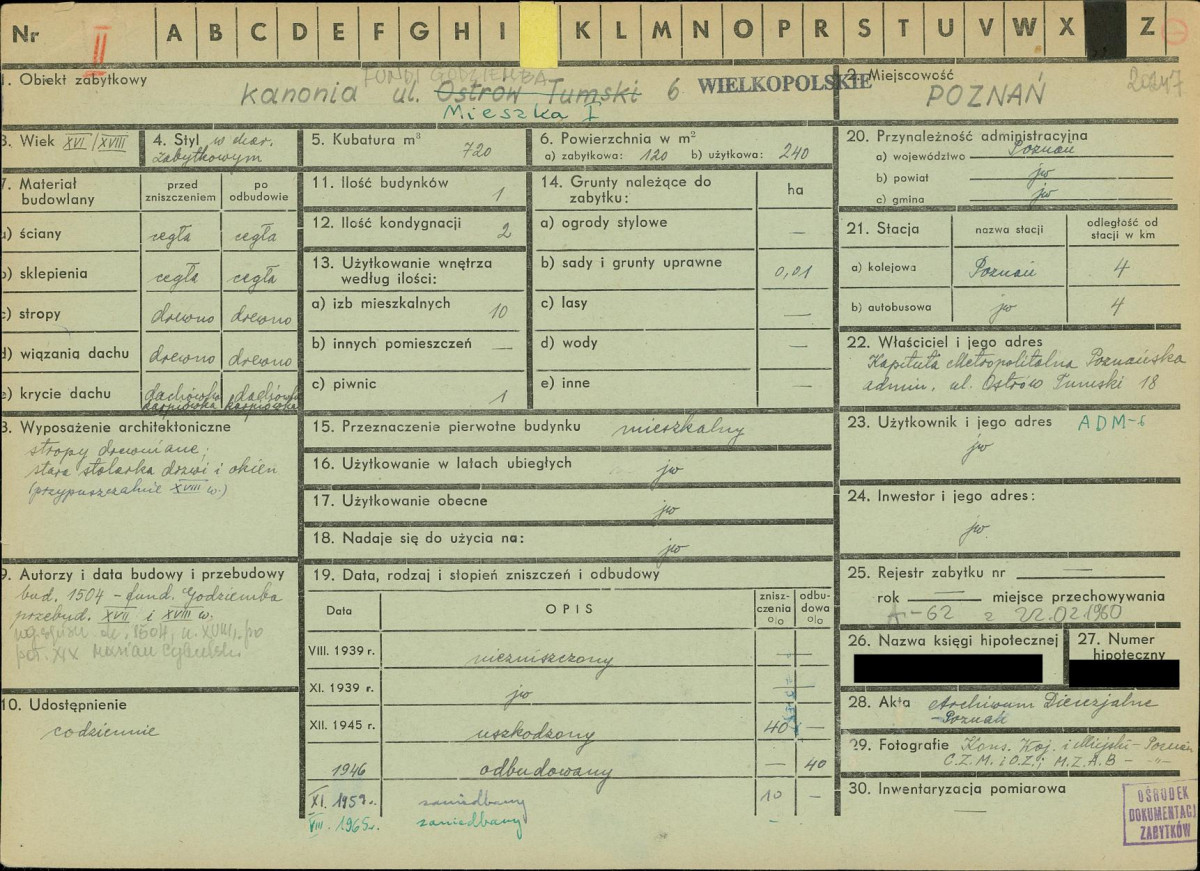 Nr II A B C D E F G H I K L M N O P R S T U V W X Z
1. Obiekt zabytkowy
FUNDI GODZIEMBA
kanonia ul. Ostrów Tumski 6 WIELKOPOLSKIE
Mieszka I
2. Miejscowość
POZNAŃ
3. Wiek XVI/XVIII
4. Styl w char.
zabytkowym
5. Kubatura m³ 720
6. Powierzchnia w m²
a) zabytkowa: 120 b) użytkowa: 240
7. Materiał budowlany
przed zniszczeniem
po odbudowie
a) ściany cegła cegła
b) sklepienia cegła cegła
c) stropy drewno drewno
d) wiązania dachu drewno drewno
e) krycie dachu dachówka karpiówka dachówka karpiówka
8. Wyposażenie architektoniczne
stropy drewniane;
stara stolarka drzwi i okien
(przypuszczalnie XVIII w.)
9. Autorzy i data budowy i przebudowy
bud. 1504 - fund. Godziemba
przebud. XVII i XVIII w.
1504, XVIII, po
poł. XIX Marian Cybulski
10. Udostępnienie
codziennie
11. Ilość budynków 1
12. Ilość kondygnacji 2
13. Użytkowanie wnętrza
według ilości:
a) izb mieszkalnych 10
b) innych pomieszczeń —
c) piwnic 1
14. Grunty należące do
zabytku: ha
a) ogrody stylowe —
b) sady i grunty uprawne 0,01
c) lasy —
d) wody —
e) inne —
15. Przeznaczenie pierwotne budynku mieszkalny
16. Użytkowanie w latach ubiegłych jw
17. Użytkowanie obecne jw
18. Nadaje się do użycia na: jw
19. Data, rodzaj i stopień zniszczeń i odbudowy
Data OPIS znisz-czenia % odbu-dowa %
VIII. 1939 r. niezniszczony — —
XI. 1939 r. jw — —
XII. 1945 r. uszkodzony 40 —
1946 odbudowany — 40
XI. 1959 r. zaniedbany 10 —
VIII. 1965 r. zaniedbany –
20. Przynależność administracyjna
a) województwo Poznań
b) powiat jw
c) gmina jw
21. Stacja nazwa stacji odległość od stacji w km
a) kolejowa Poznań 4
b) autobusowa jw 4
22. Właściciel i jego adres
Kapituła Metropolitalna Poznańska
admin. ul. Ostrów Tumski 18
23. Użytkownik i jego adres ADM-6
jw
24. Inwestor i jego adres:
jw.
25. Rejestr zabytku nr —
rok — miejsce przechowywania
A-62 z 22.02.1960
26. Nazwa księgi hipotecznej
27. Numer
hipoteczny
28. Akta Archiwum Diecezjalne
- Poznań
29. Fotografie Kons. Woj. i Miejski - Poznań
C.Z.M. i O.Z.; M.Z.A.B - -"-
30. Inwentaryzacja pomiarowa
—
OŚRODEK
DOKUMENTACJI
ZABYTKÓW